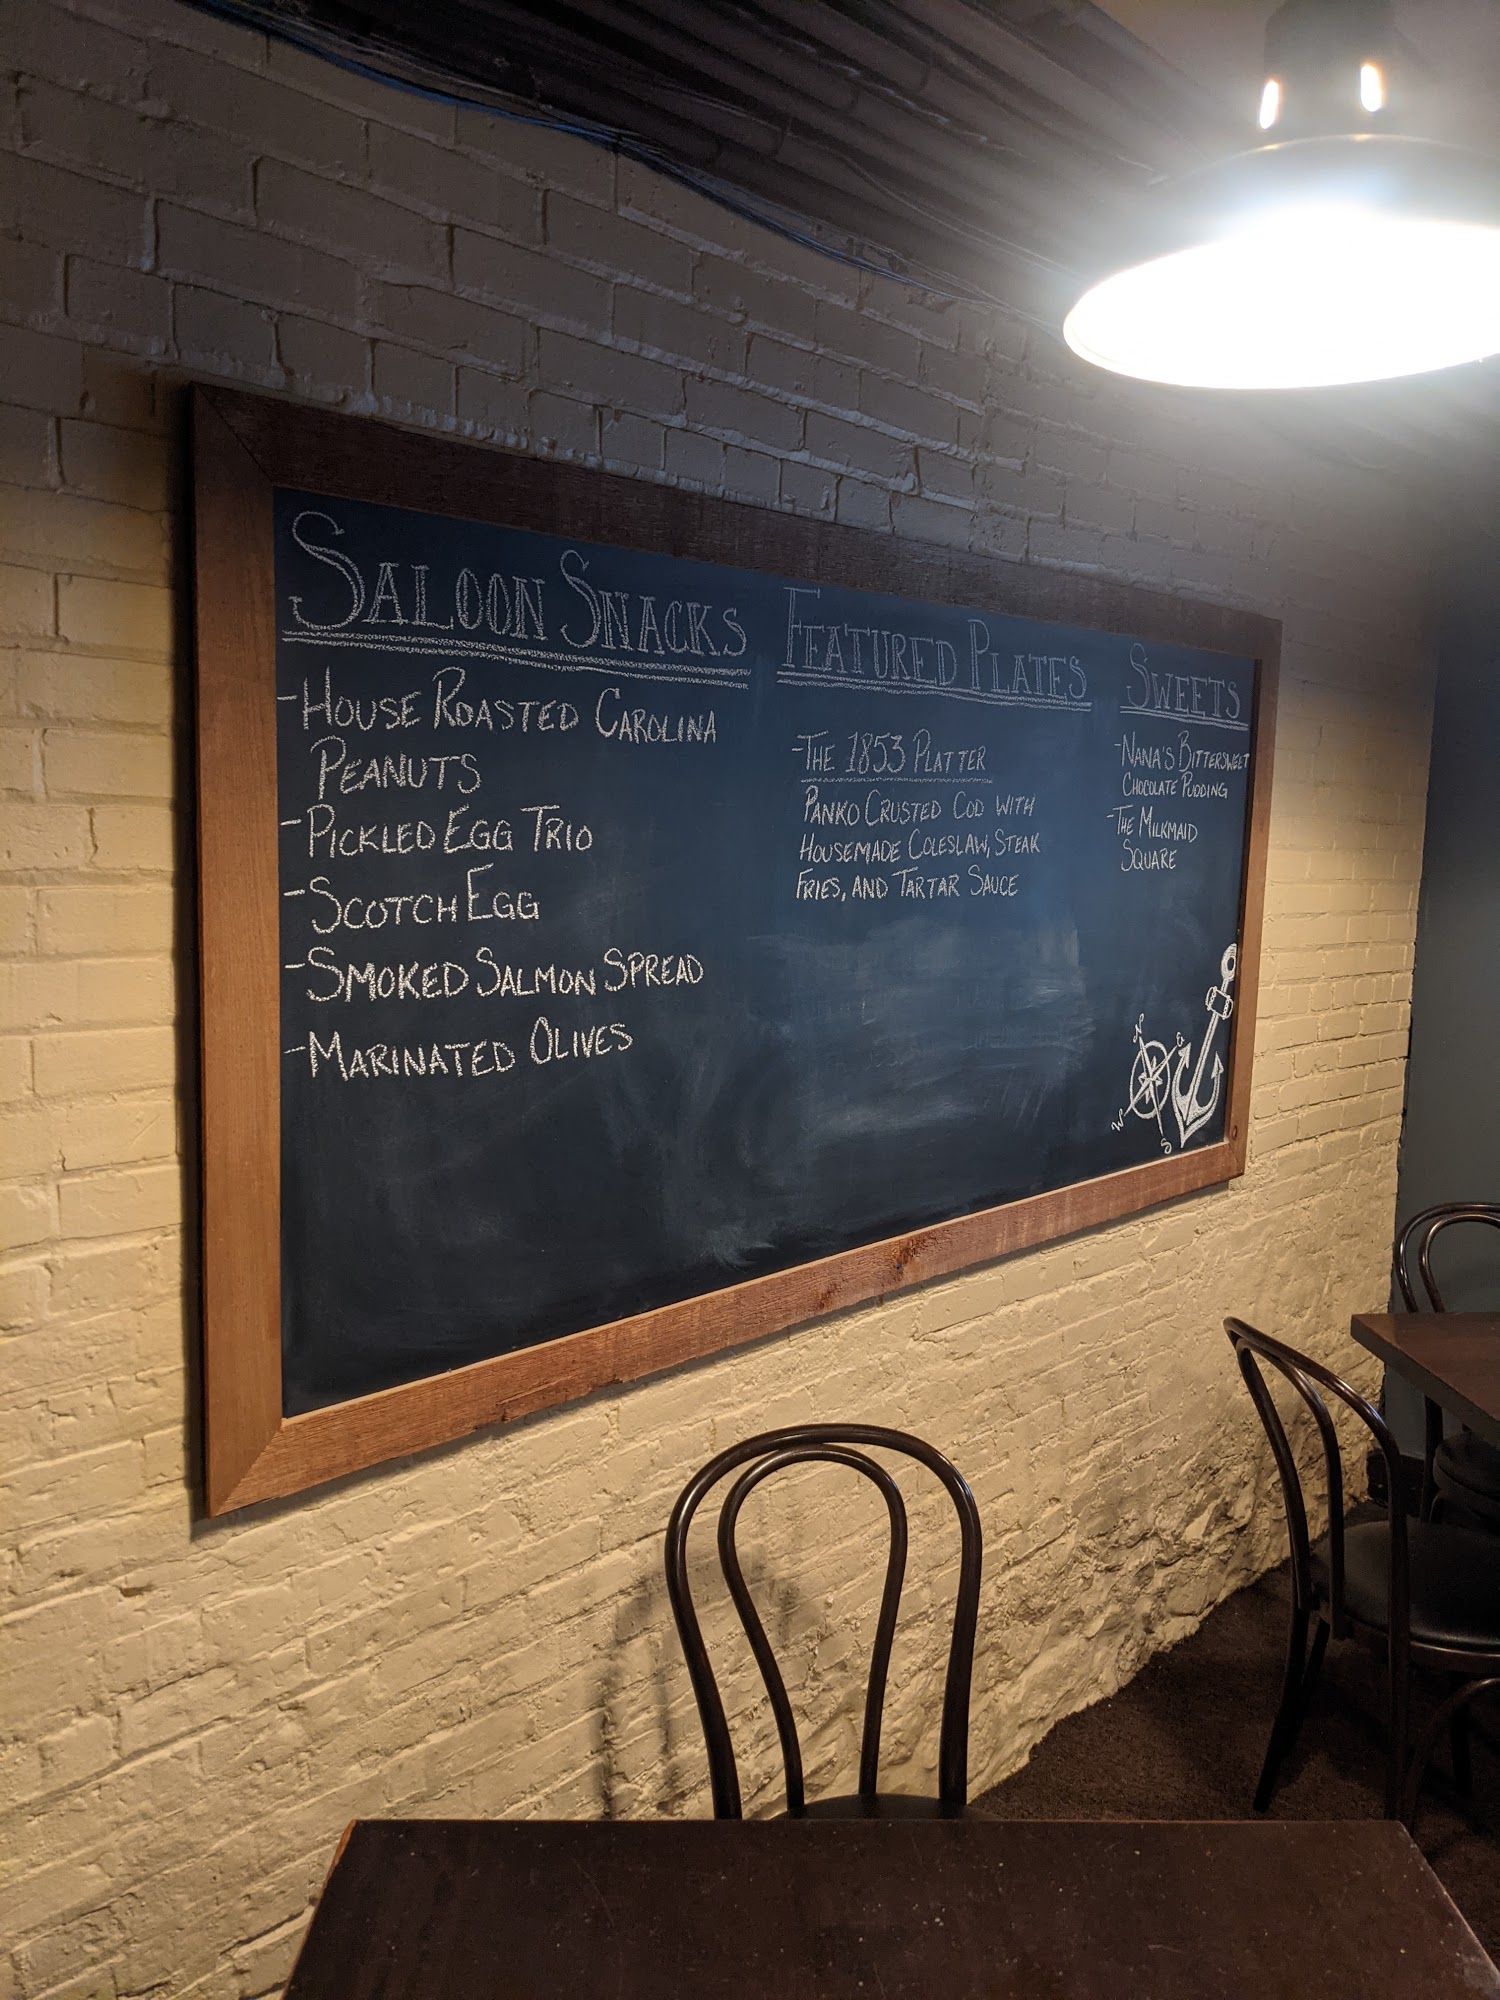 SALOON SNACKS
-HOUSE ROASTED CAROLINA
PEANUTS
-PICKLED EGG TRIO
-SCOTCH EGG
-SMOKED SALMON SPREAD
-MARINATED OLIVES
FEATURED PLATES
-THE 1853 PLATTER
PANKO CRUSTED COD WITH
HOUSEMADE COLESLAW, STEAK
FRIES, AND TARTAR SAUCE
SWEETS
-NANA'S BITTERSWEET
CHOCOLATE PUDDING
-THE MILKMAID
SQUARE
N
W
S